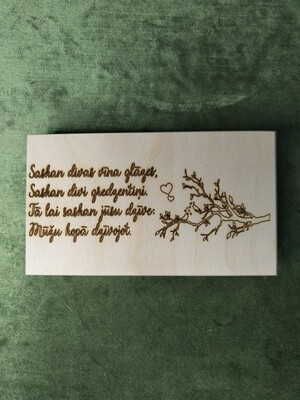 Saskan divas vīna glāzes,
Saskan divi gredzentiņi.
Tā lai saskan jūsu dzīve:
Mūžu kopā dzīvojot.